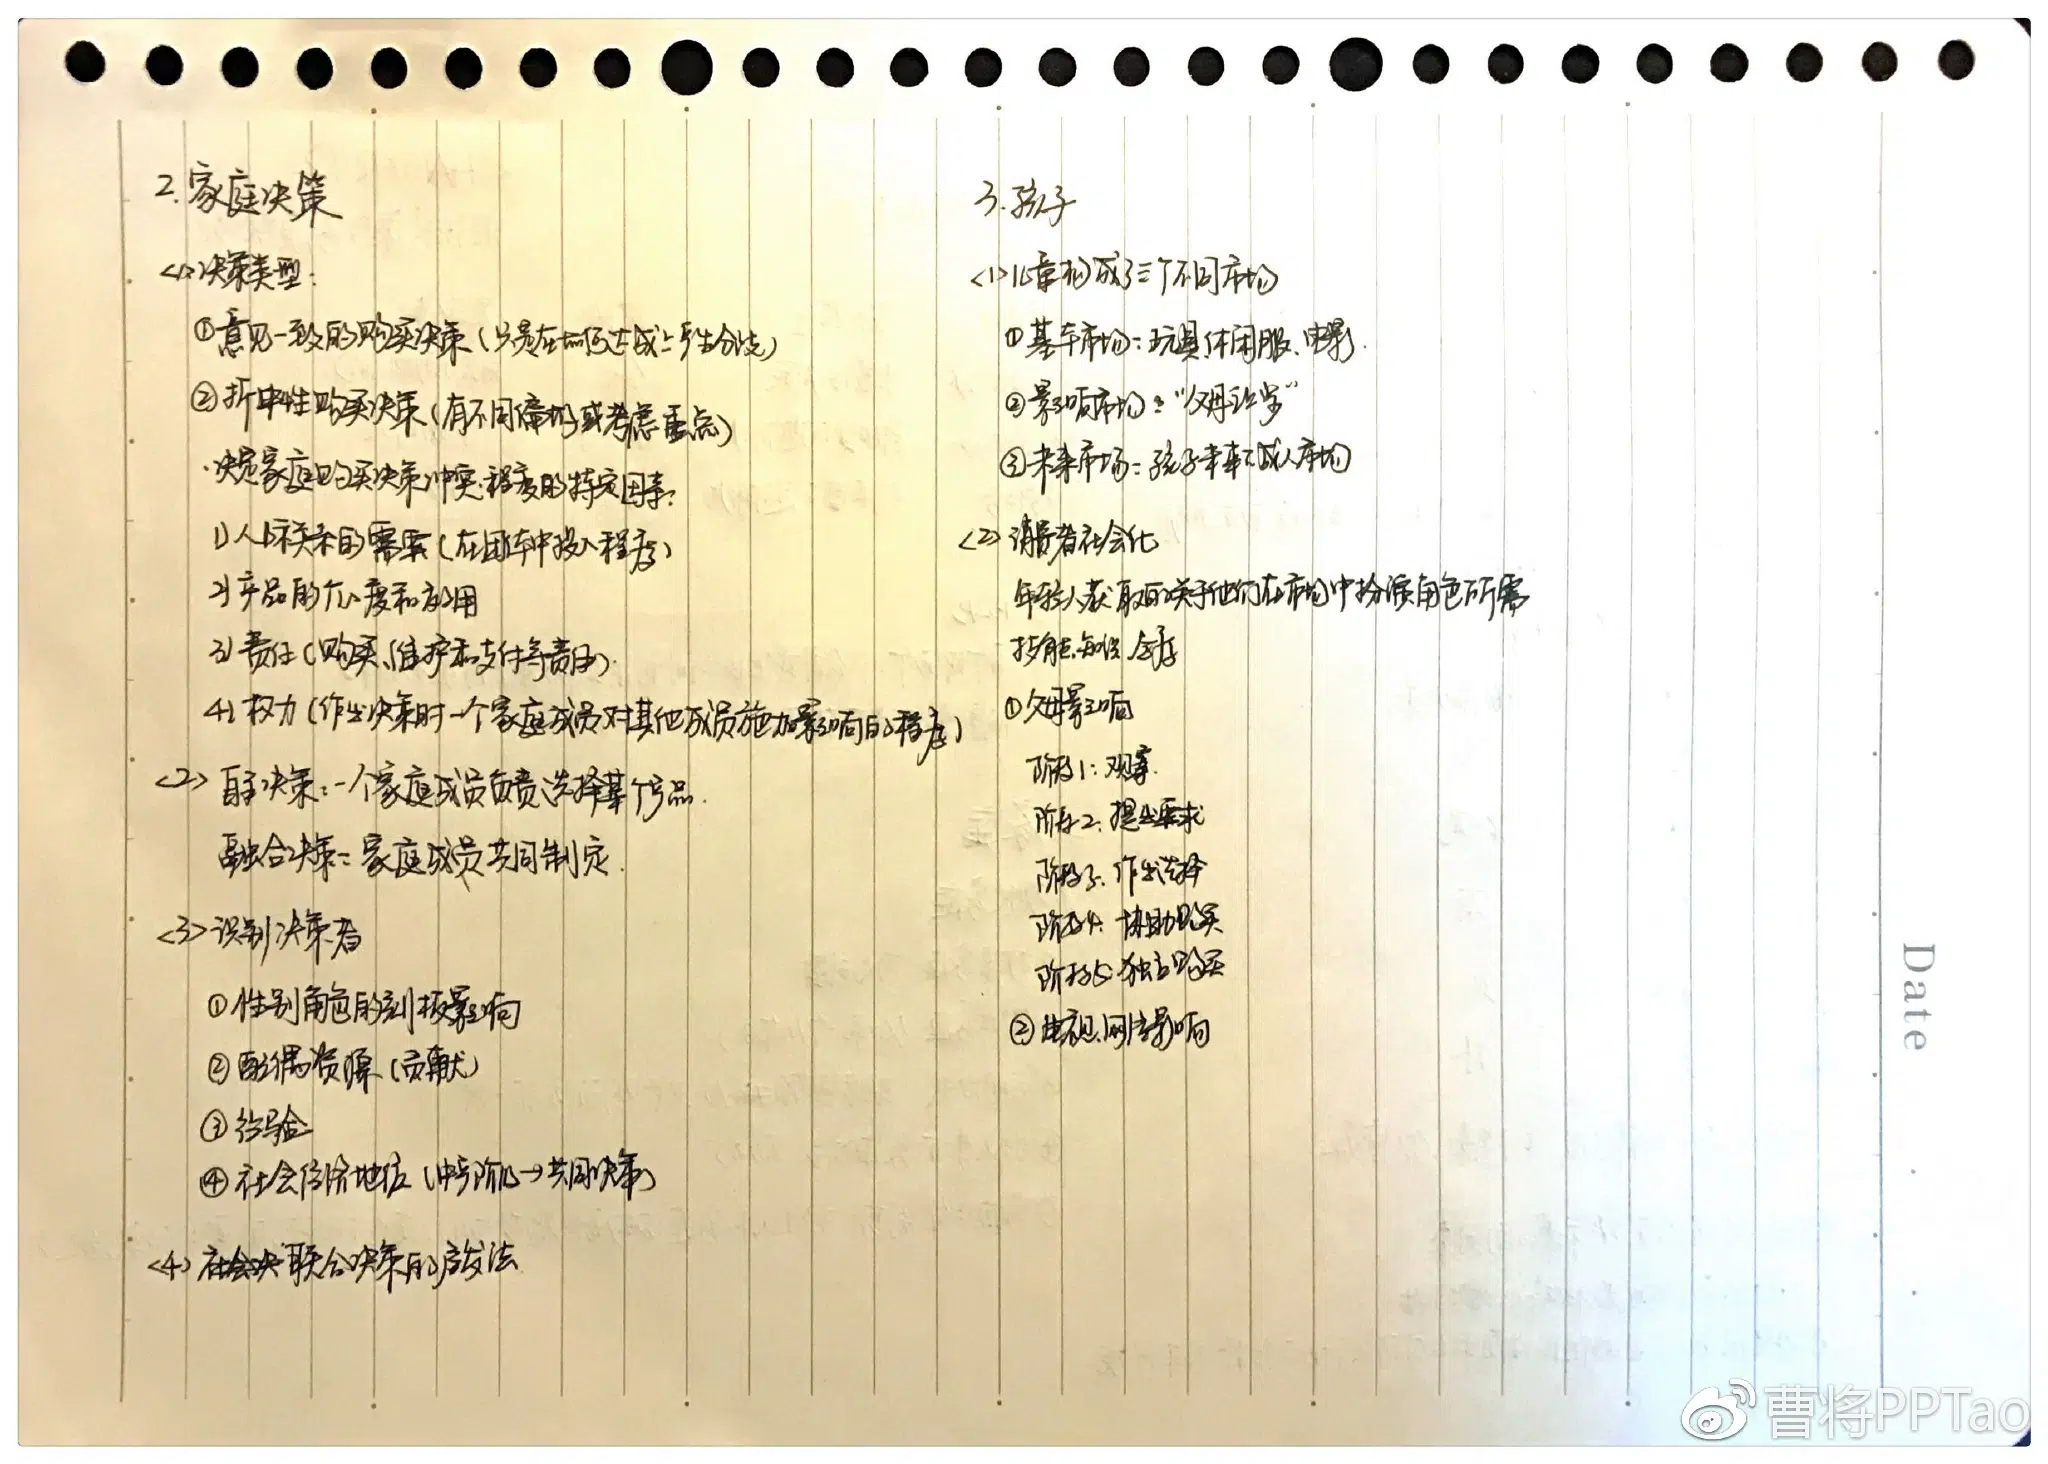 2.家庭决策
<1>决策类型:
①意见一致的购买决策(只是在如何达成上产生分歧)
②折中性购买决策(有不同偏好或考虑重点)
·决定家庭购买决策冲突程度的特定因素:
1)人际关系的需要(在团体中投入程度)
2)产品的介入度和效用
3)责任(购买、维护和支付等责任).
4)权力(作出决策时一个家庭成员对其他成员施加影响的程度)
<2>自主决策:一个家庭成员负责选择某个产品.
融合决策:家庭成员共同制定.
<3>识别决策者
①性别角色的刻板影响
②配偶资源(贡献)
③经验
④社会经济地位(中产阶级→共同决策)
<4>联合决策的启发法
3.孩子
<1>儿童构成了三个不同市场
①基本市场:玩具、休闲服、电影.
②影响市场:"父母让步"
③未来市场:孩子未来成人市场
<2>消费者社会化
年轻人获取的关于他们在市场中扮演角色所需
技能、知识、态度
①父母影响
阶段1:观察.
阶段2.提出要求
阶段3.作出选择
阶段4.协助购买
阶段5.独立购买
②电视、网络影响
Date
曹将PPTao